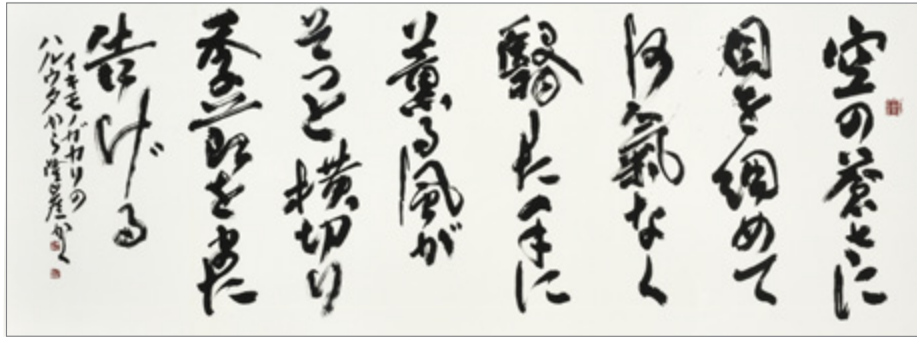 空の蒼さに
目を細めて
何氣なく
翳した手に
薫る風が
そっと横切り
季節をまた
告げる
イキモノガカリの
ハルウタから かく